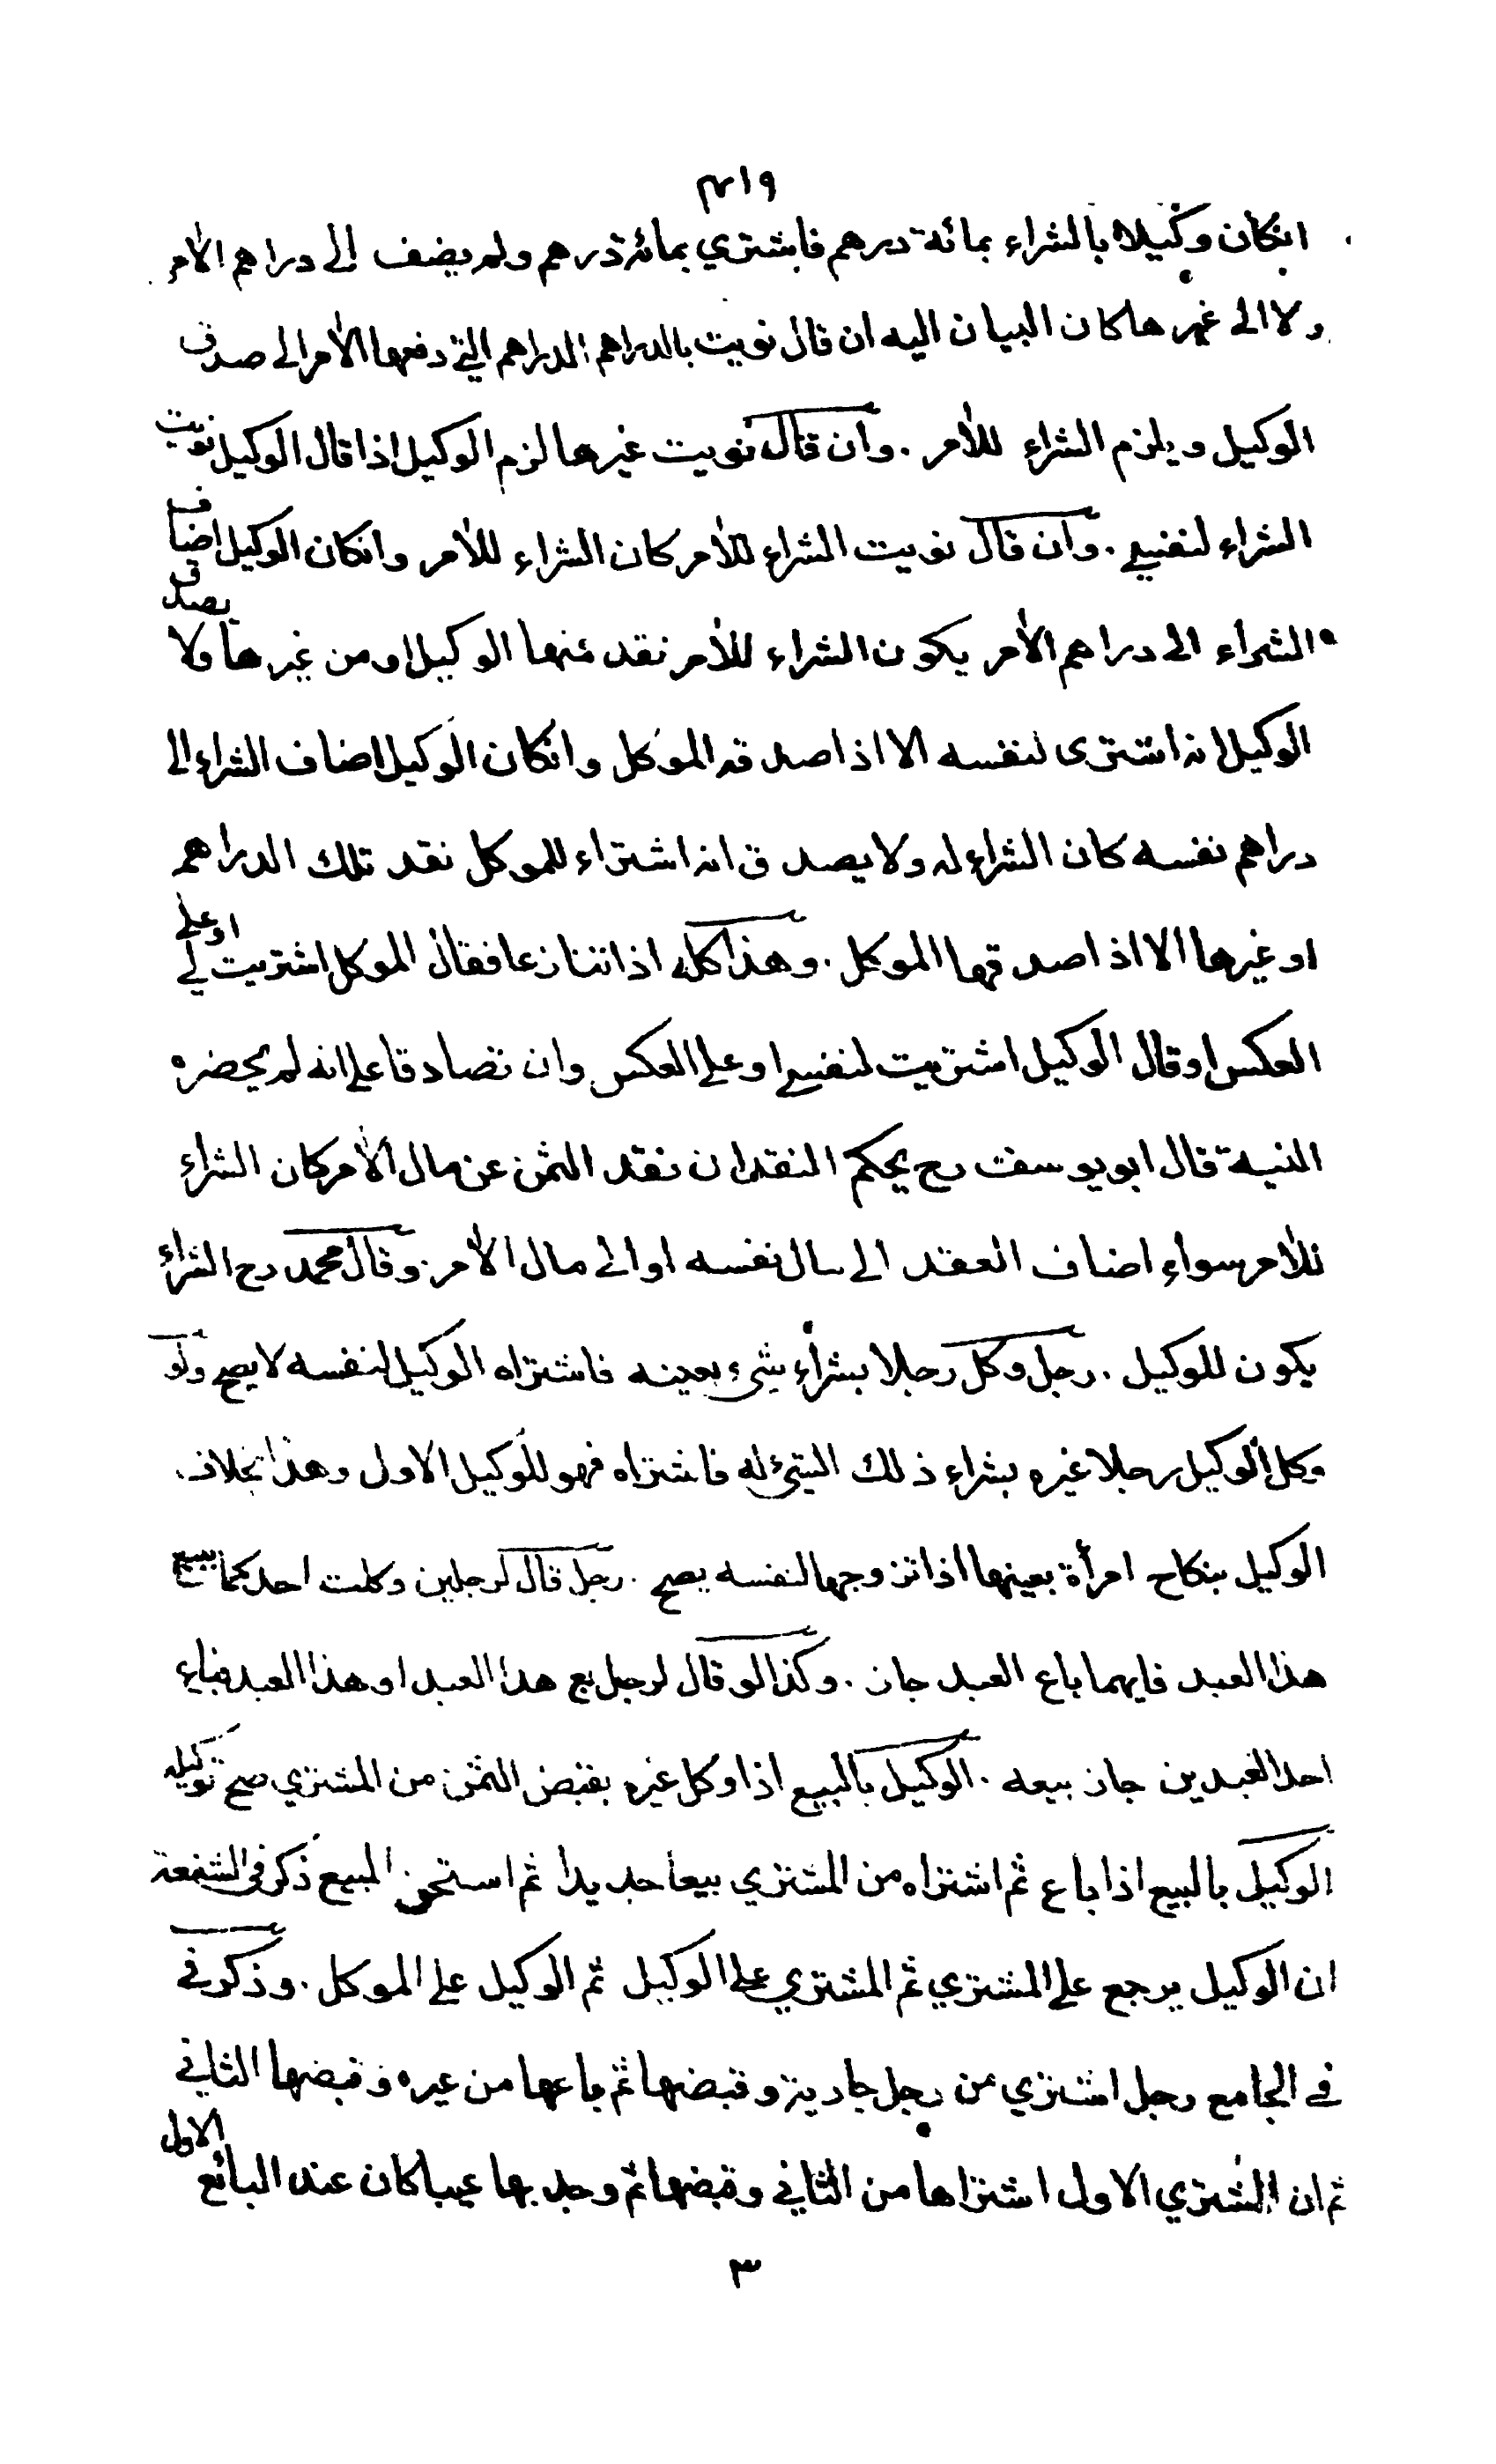 ٤١٩
انكان وكيلا بالشراء بمائة درهم فاشتري بمائة درهم ولم يضف الى دراهم الآمر
ولا الى غيرها كان البيان اليه ان قال نويت بالدراهم الدراهم التي دفعها الآمر الى صدق
الوكيل ويلزم الشراء للآمر . وان قال نويت غيرها لزم الوكيل اذا قال الوكيل نويت
الشراء لنفسي . وان قال نويت الشراء للآمر كان الشراء للآمر وانكان الوكيل اضاف
الشراء الى دراهم الآمر يكون الشراء للآمر نقد منها الوكيل او من غيرها ولا يصدق
الوكيل انه اشترى لنفسه الا اذا صدقه الموكل وانكان الوكيل اضاف الشراء الى
دراهم نفسه كان الشراء له ولا يصدق انه اشتراء للموكل نقد تلك الدراهم
او غيرها الا اذا صدقها الموكل . وهذا كله اذا تنازعا فقال الموكل اشتريت لي او على
العكس او قال الوكيل اشتريت لنفسي او على العكس وان تصادقا على انه لم يحضره
النية قال ابو يوسف رح يحكم النقد ان نقد الثمن عن مال الآمر كان الشراء
للآمر سواء اضاف العقد الى مال نفسه او الى مال الآمر . وقال محمد رح الشراء
يكون للوكيل . رجل وكل رجلا بشراء شيء بعينه فاشتراه الوكيل لنفسه لا يصح ولو
وكل الوكيل رجلا غيره بشراء ذلك الشيء له فاشتراه فهو للوكيل الاول وهذا بخلاف
الوكيل بنكاح امرأة بعينها اذا تزوجها لنفسه يصح . رجل قال لرجلين وكلت احدكما ببيع
هذا العبد فايهما باع العبد جاز . وكذا لو قال لرجل بع هذا العبد او هذا العبد فباع
احد العبدين جاز بيعه . الوكيل بالبيع اذا وكل غيره بقبض الثمن من المشتري صح توكيله
الوكيل بالبيع اذا باع ثم اشتراه من المشتري بيعا جديدا ثم استحق المبيع ذكر في الشفعة
ان الوكيل يرجع على المشتري ثم المشتري على الوكيل ثم الوكيل على الموكل . وذكر في
في الجامع رجل اشتري من رجل جارية وقبضها ثم باعها من غيره وقبضها الثاني
ثم ان المشتري الاول اشتراها من الثاني وقبضها ثم وجد بها عيبا كان عند البائع الاول
٣